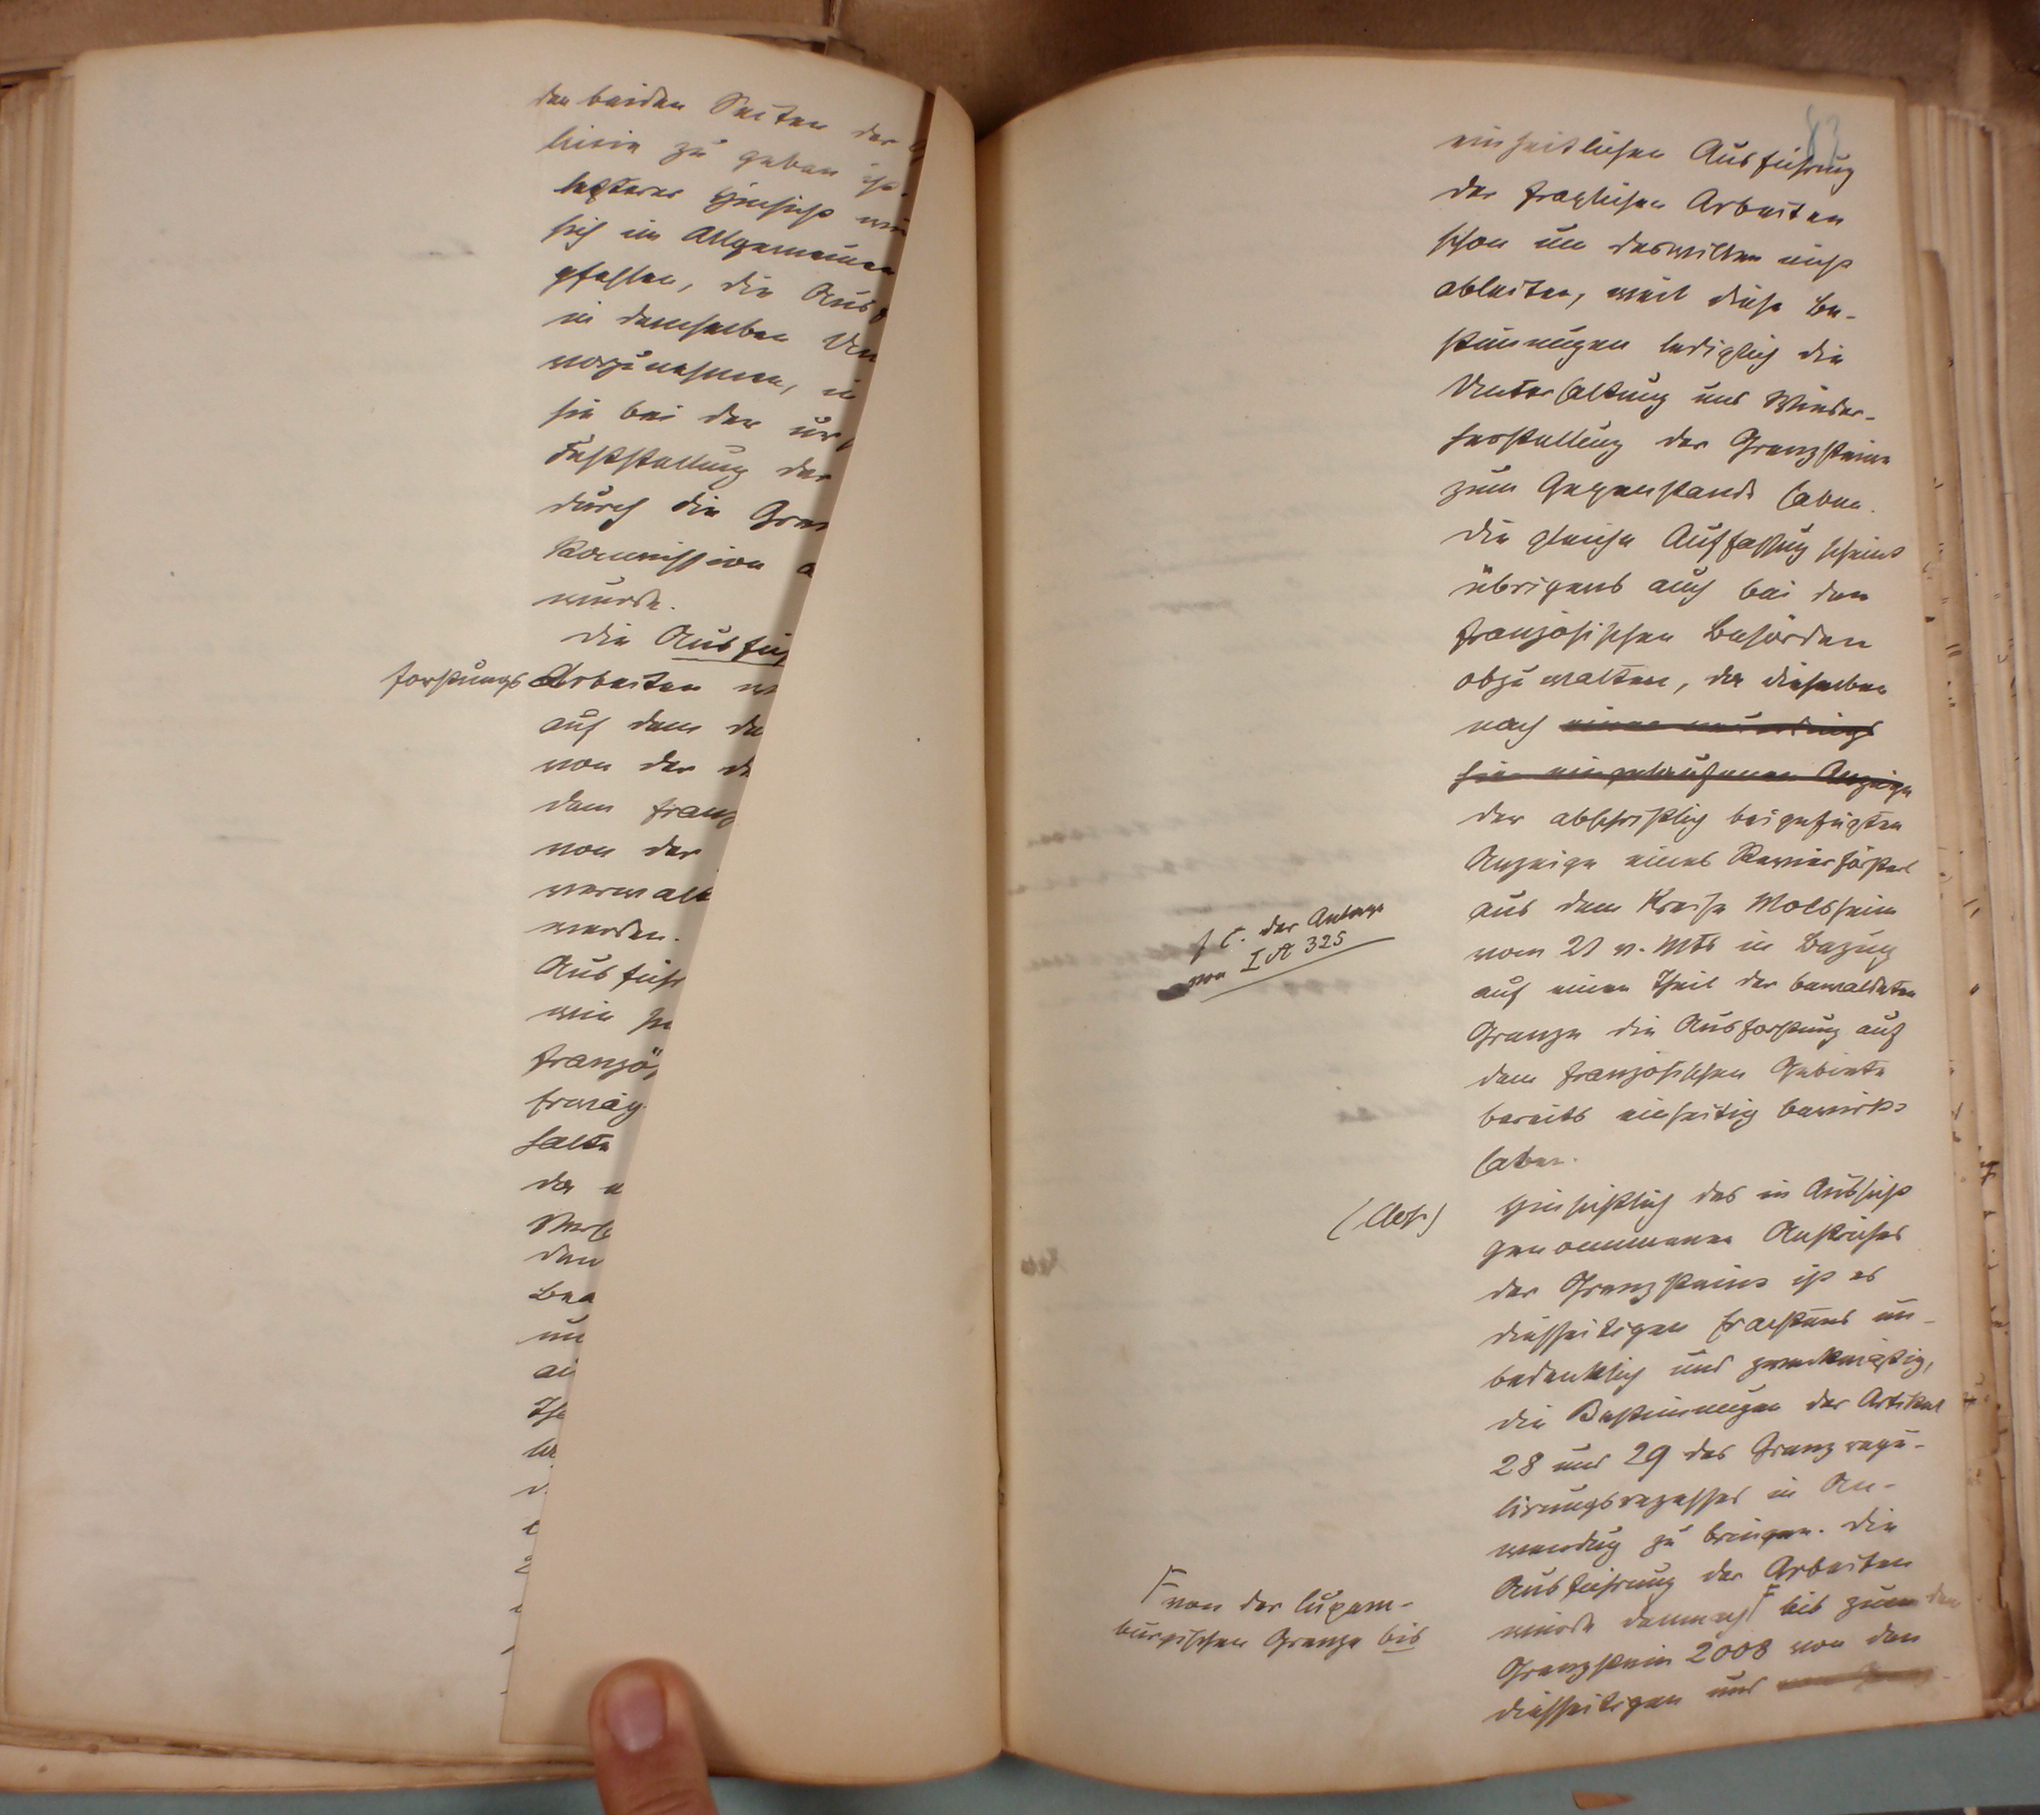 den beiden Seiten der
linie zu geben ist.
letzterer Hinsicht
sich im Allgemeinen
pfehlen, die Aus
in demselben Um
vorzunehmen, 
sie bei der ur
Feststellung der
durch die Gren
Kommission a
wurde.
Die Ausfüh
forstungs Arbeiten
auf dem
von der d
dem franz
von der
verwalt
werden.
Ausfüh
wie
französ
Erwäg
halte
da
den
Bea
un
83
einheitlichen Ausführung
der fraglichen Arbeiten
schon um deswillen nicht
ableiten, weil diese Be-
stimmungen lediglich die
Unterhaltung und Wieder-
herstellung der Grenzsteine
zum Gegenstande haben.
Die gleiche Auffassung scheint
übrigens auch bei den
französischen Behörden
obzuwalten, da dieselben
nach einer neuerdings
hier eingelaufenen Anzeige
der abschriftlich beigefügten
Anzeige eines Revierförsters
aus dem Kreise Molsheim
vom 21 v. Mts in Bezug
auf einen Theil der bewaldeten
Grenze die Ausforstung auf
dem französischen Gebiete
bereits einseitig bewirkt
haben.
f c. der Anlage
von I A 325
(Abs.)
Hinsichtlich des in Aussicht
genommenen Anstriches
der Grenzsteine ist es
diesseitigen Erachtens un-
bedenklich und zweckmäßig,
die Bestimmungen der Artikel
28 und 29 des Grenzregu-
lirungsrezesses in An-
wendung zu bringen. Die
Ausführung der Arbeiten
würde demnach F bis zum den
Grenzstein 2008 von den
diesseitigen und
F von der luxem-
burgischen Grenze bis